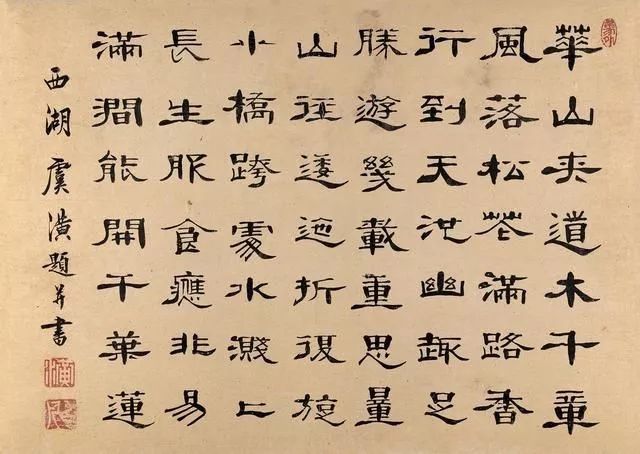 華山夾道木千章
風落松花滿路香
行到天池幽趣足
勝遊幾載重思量
山徑逶迤折復旋
小橋跨處水濺〻
長生服食應非易
滿澗能開千葉蓮
西湖虞潢題并書